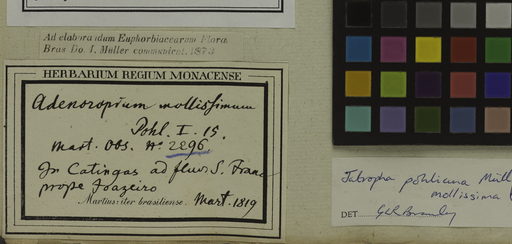 Ad elaborandum Euphorbiacearum Florae
Bras Do. J. Müller communicat. 1873
HERBARIUM REGIUM MONACENSE
Adenoropium mollissimum
Pohl. I. 15.
Mart. Obs. No. 2296.
In Catingas ad fluv. S. Franc
prope Joazeiro
Martius: iter brasiliense. Mart. 1819
Jatropha pohliana Müll
mollissima
DET.